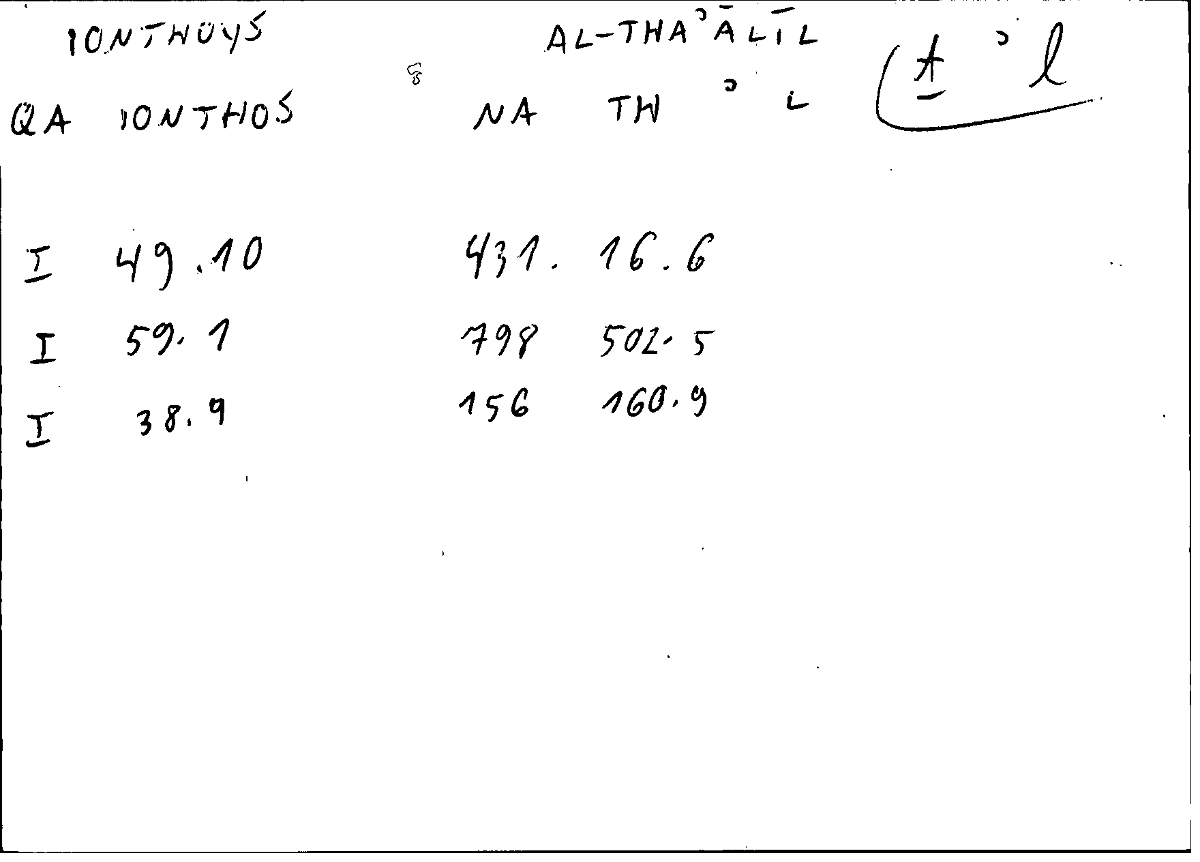 IONTHOYS AL-THAʾĀLĪL
QA IONTHOS NA TH ʾ L ṯ ʾ l
I 49.10 431. 16.6
I 59.1 798 502.5
I 38.9 156 160.9